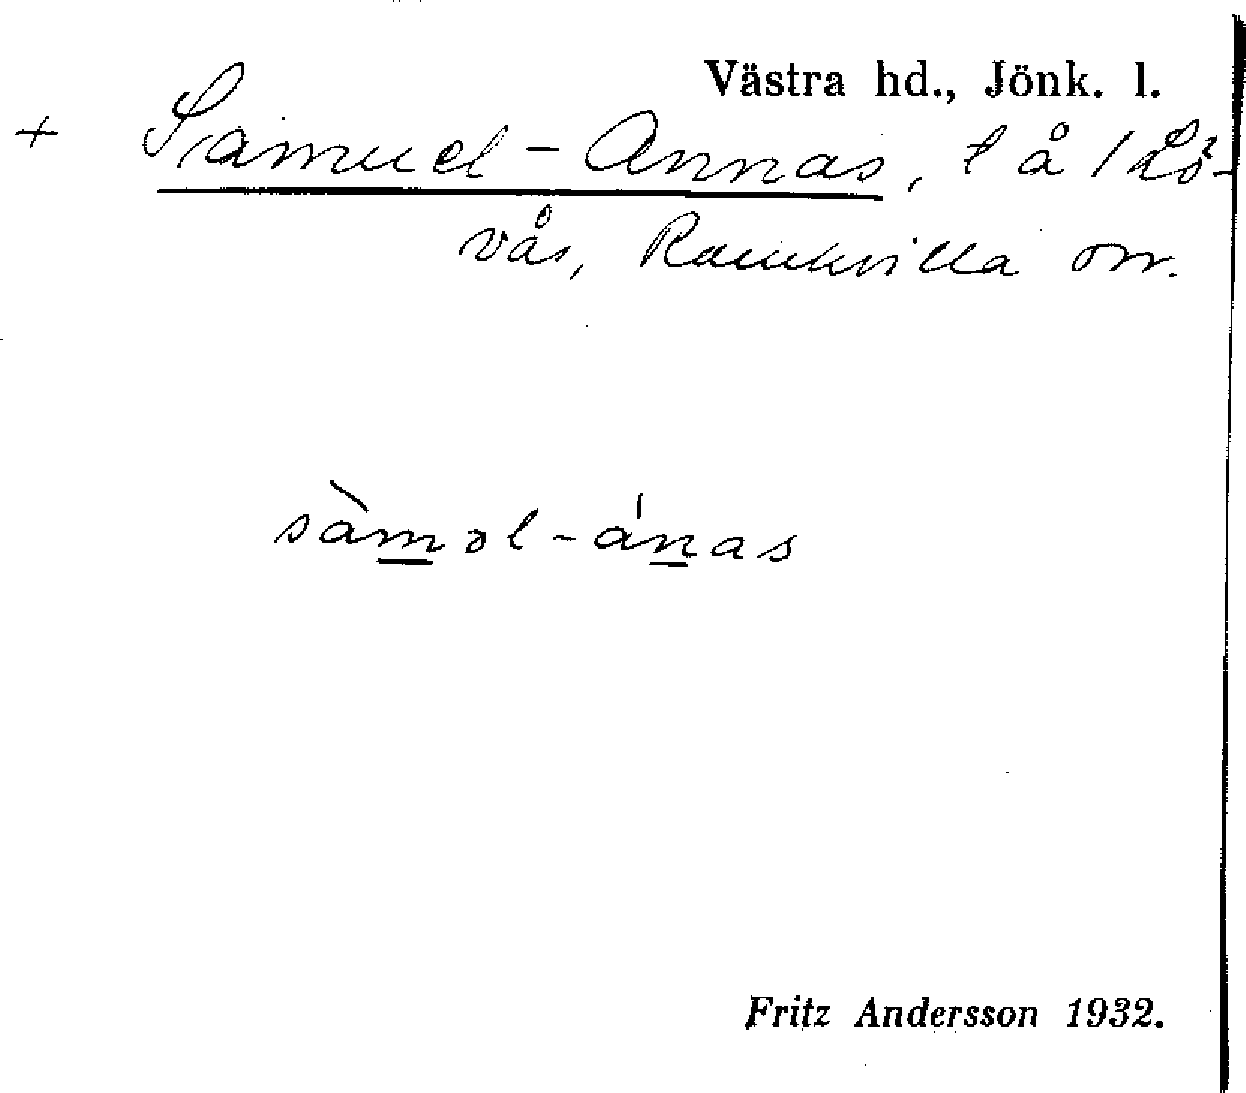 Västra hd., Jönk. l.
+ Samuel-Annas, t å 1 Lö-
vås, Ramkvilla sn.
sàməl-ánas
Fritz Andersson 1932.